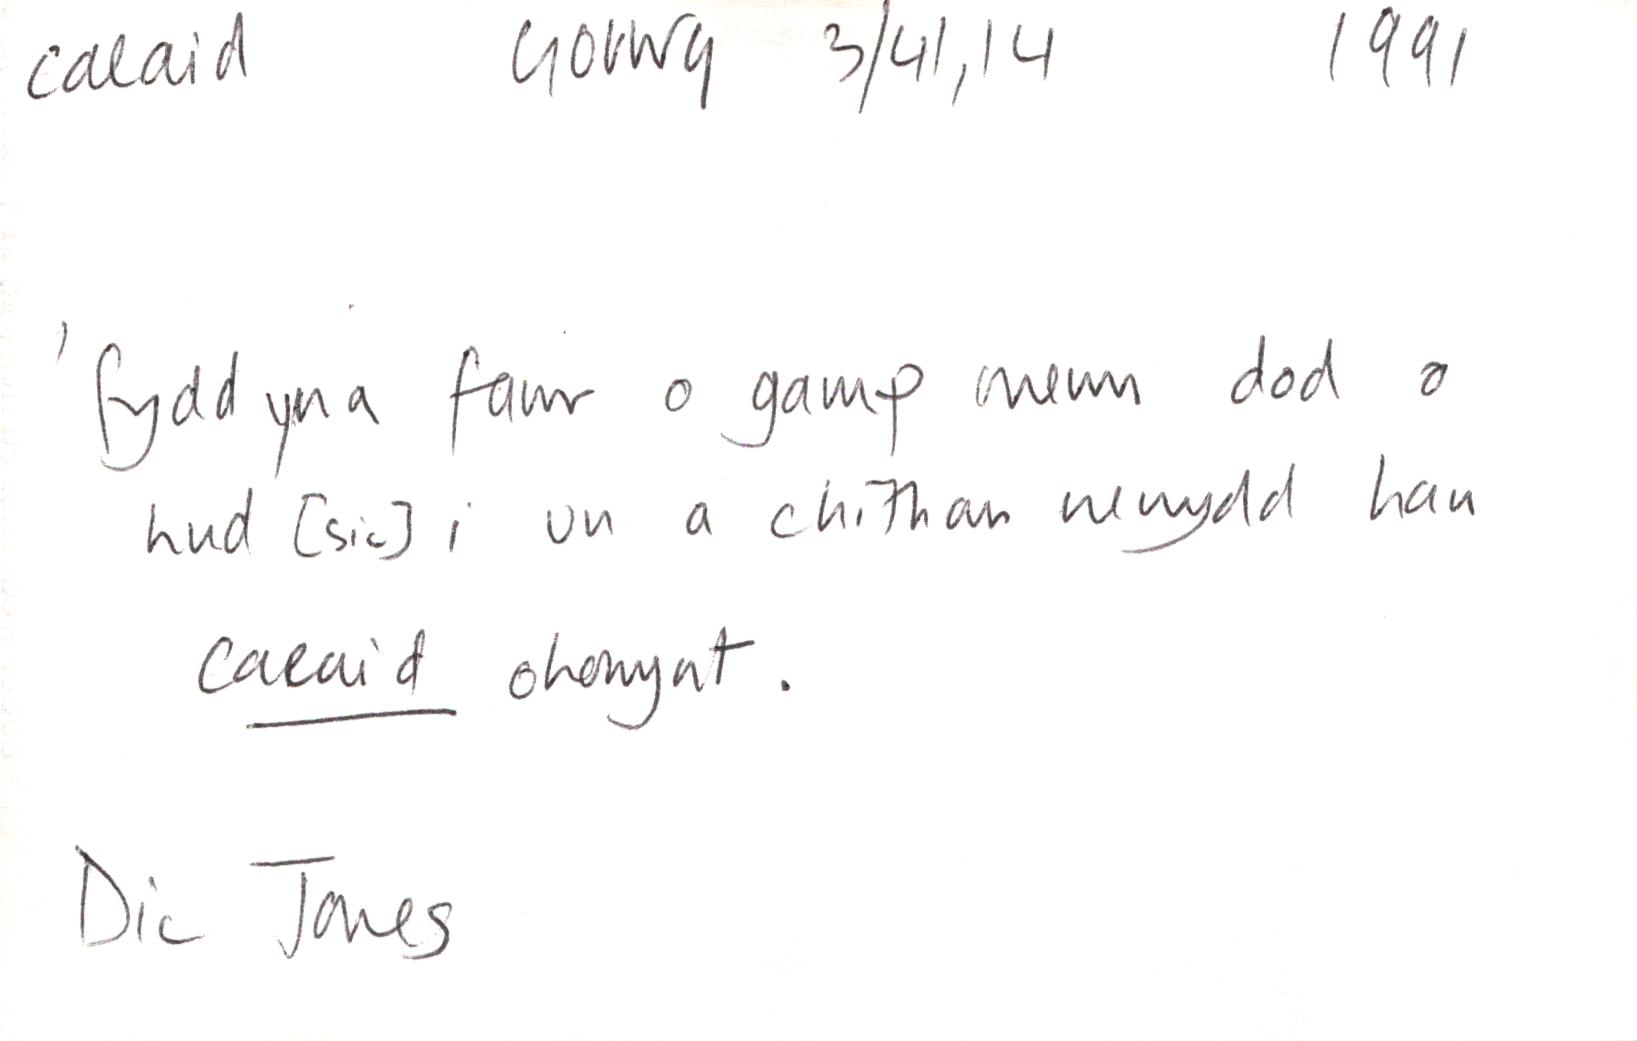 calaid GOLWG 3/41,14 1991
'fydd yna fawr o gamp mewn dod o
hud [sic] i un a chithau newydd hau
calaid ohonynt.
Dic Jones